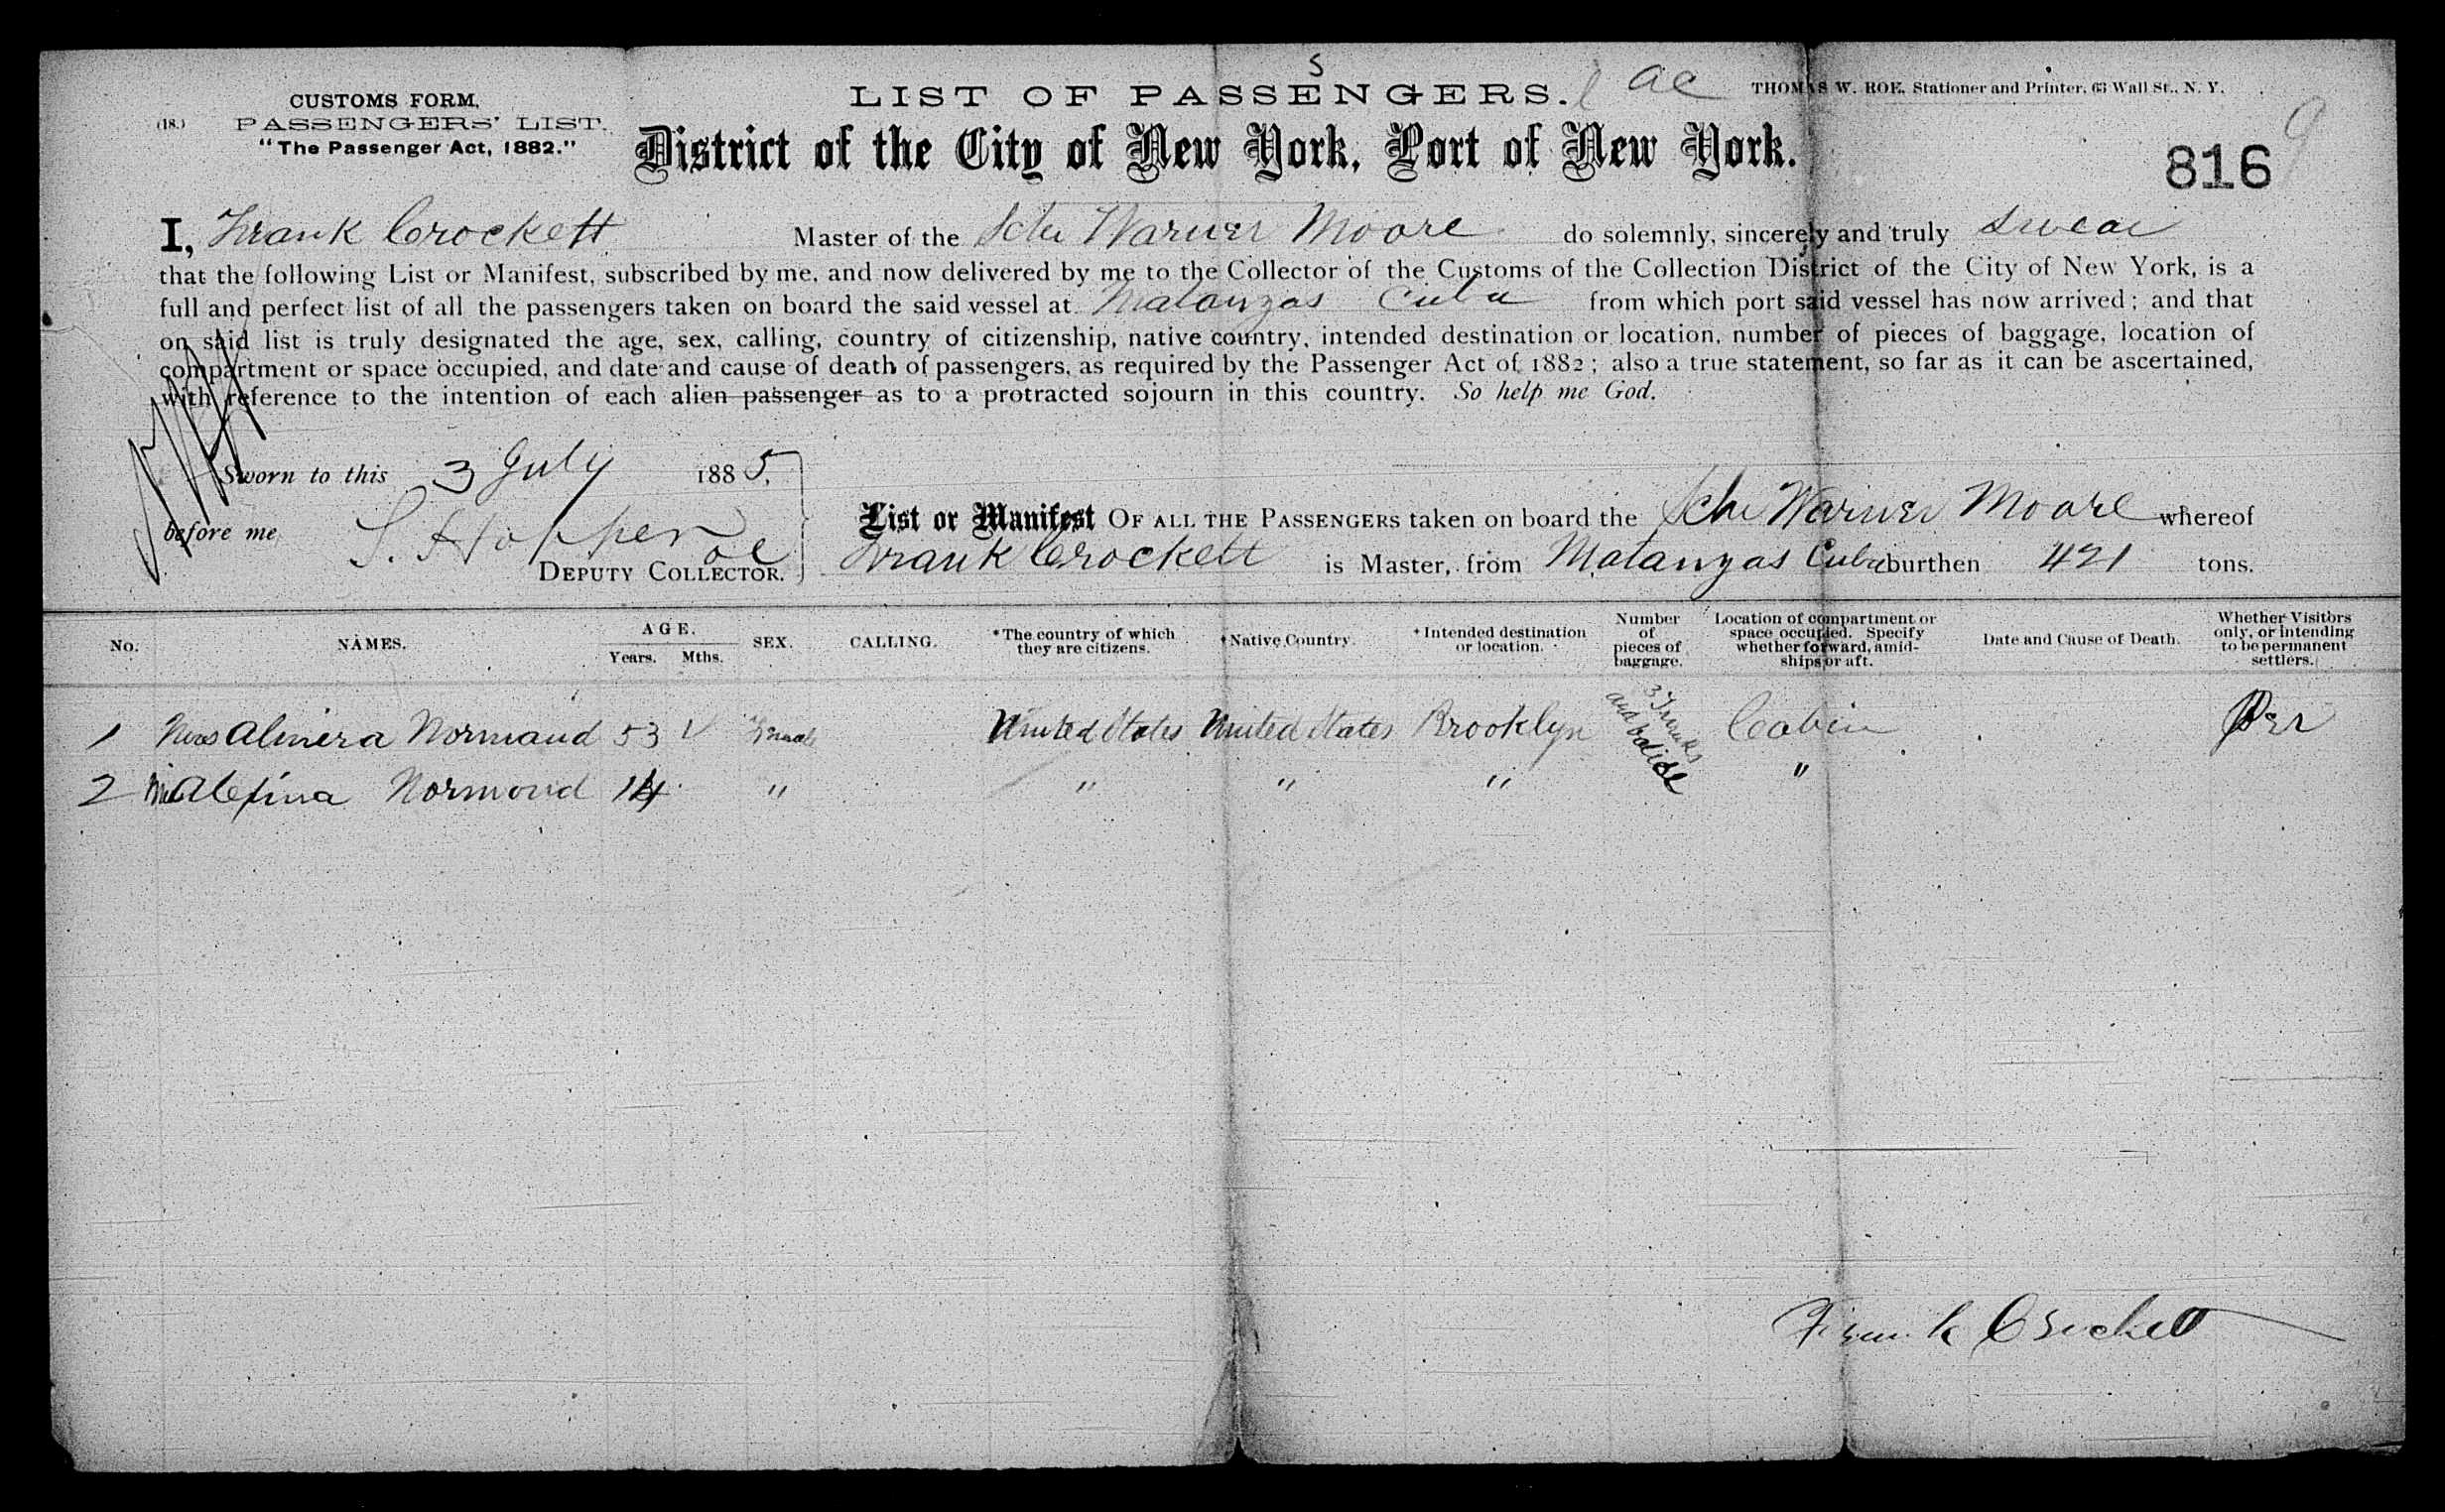 S
CUSTOMS FORM,
(18.) PASSENGERS' LIST.
"The Passenger Act, 1882."
LIST OF PASSENGERS.
THOMAS W. ROE, Stationer and Printer, 63 Wall St., N. Y.
District of the City of New York, Port of New York.
816
I, Frank Crockett Master of the Schr Warner Moore do solemnly, sincerely and truly swear
that the following List or Manifest, subscribed by me, and now delivered by me to the Collector of the Customs of the Collection District of the City of New York, is a
full and perfect list of all the passengers taken on board the said vessel at Matanzas Cuba from which port said vessel has now arrived; and that
on said list is truly designated the age, sex, calling, country of citizenship, native country, intended destination or location, number of pieces of baggage, location of
compartment or space occupied, and date and cause of death of passengers, as required by the Passenger Act of 1882; also a true statement, so far as it can be ascertained,
with reference to the intention of each alien passenger as to a protracted sojourn in this country. So help me God.
Sworn to this 3 July 1885.
before me
DEPUTY COLLECTOR.
List or Manifest OF ALL THE PASSENGERS taken on board the Schr Warner Moore whereof
Frank Crockett is Master, from Matanzas Cuba burthen 421 tons.
No. NAMES. AGE. Years. Mths. SEX. CALLING. *The country of which they are citizens. *Native Country. *Intended destination or location. Number of pieces of baggage. Location of compartment or space occupied. Specify whether forward, amidships or aft. Date and Cause of Death. Whether Visitors only, or intending to be permanent settlers.
1 Almera Normand 53 Female United States United States Brooklyn 3 Trunks and Cabin Per
2 Normond 14 " " " " "
Frank Crockett